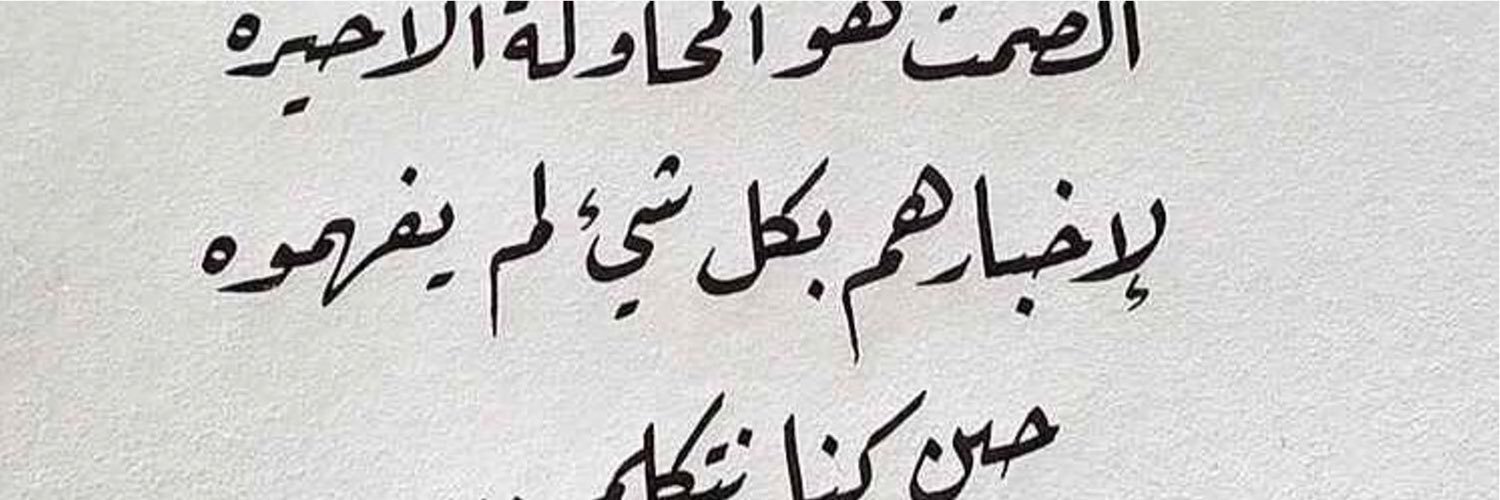 الصمت هو المحاولة الأخيرة
لإخبارهم بكل شيء لم يفهموه
حين كنا نتكلم